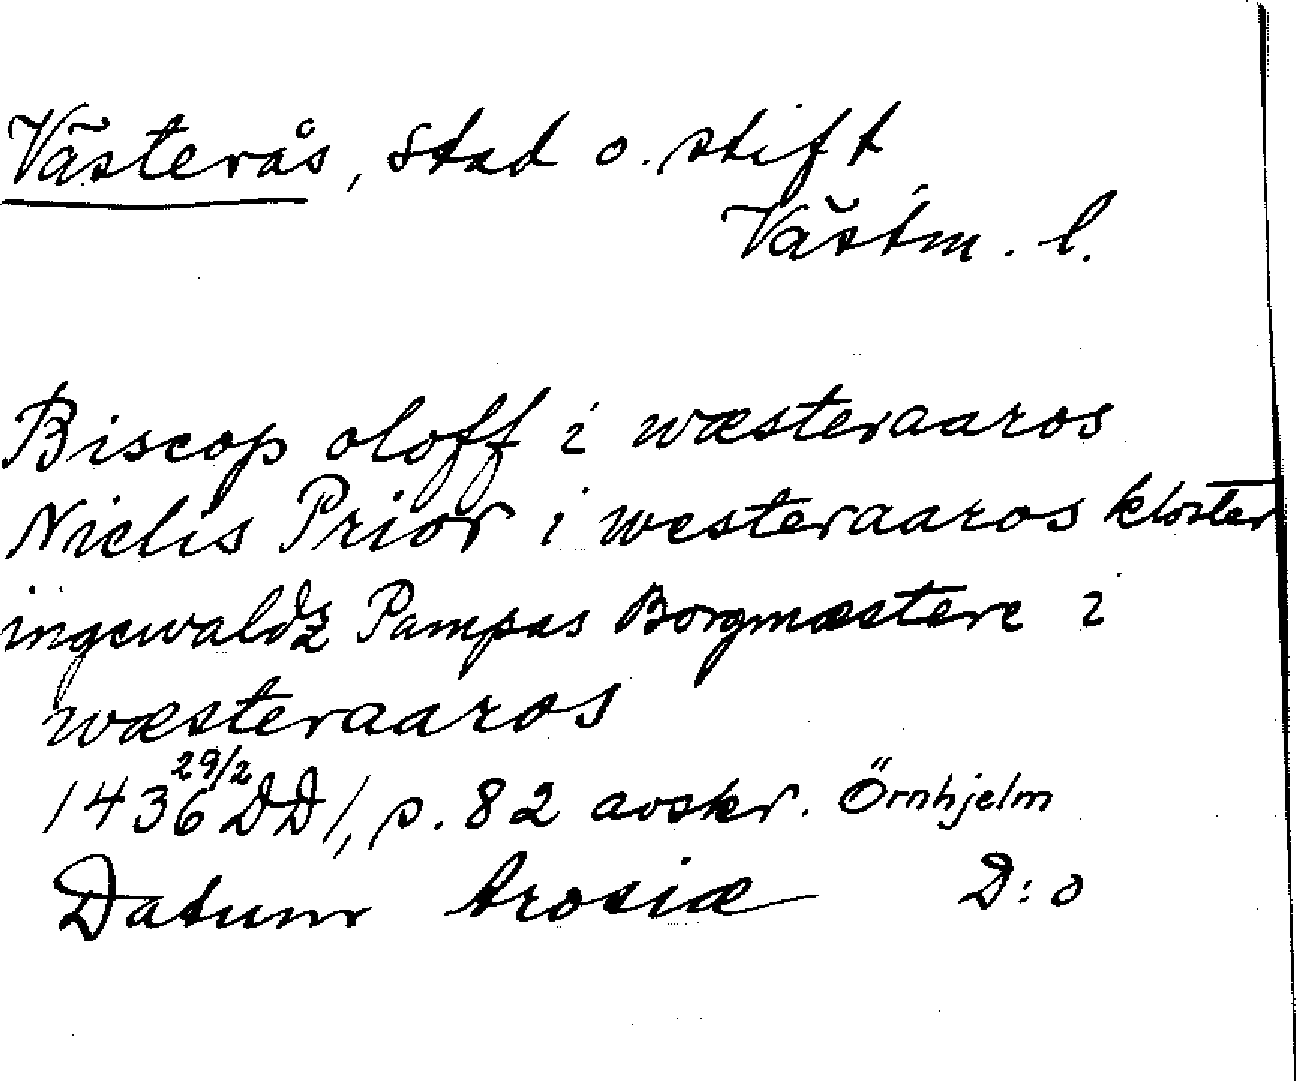 Västerås, stad o. stift
Västm. l.
Biscop oloff i wæsteraaros
Niclis Prior i westeraaros kloster
ingewaldz Pampas Borgmæstere i
wæsteraaros
1436 29/2 DD 1, p. 82 avskr. Örnhjelm
Datum Arosiæ D:o